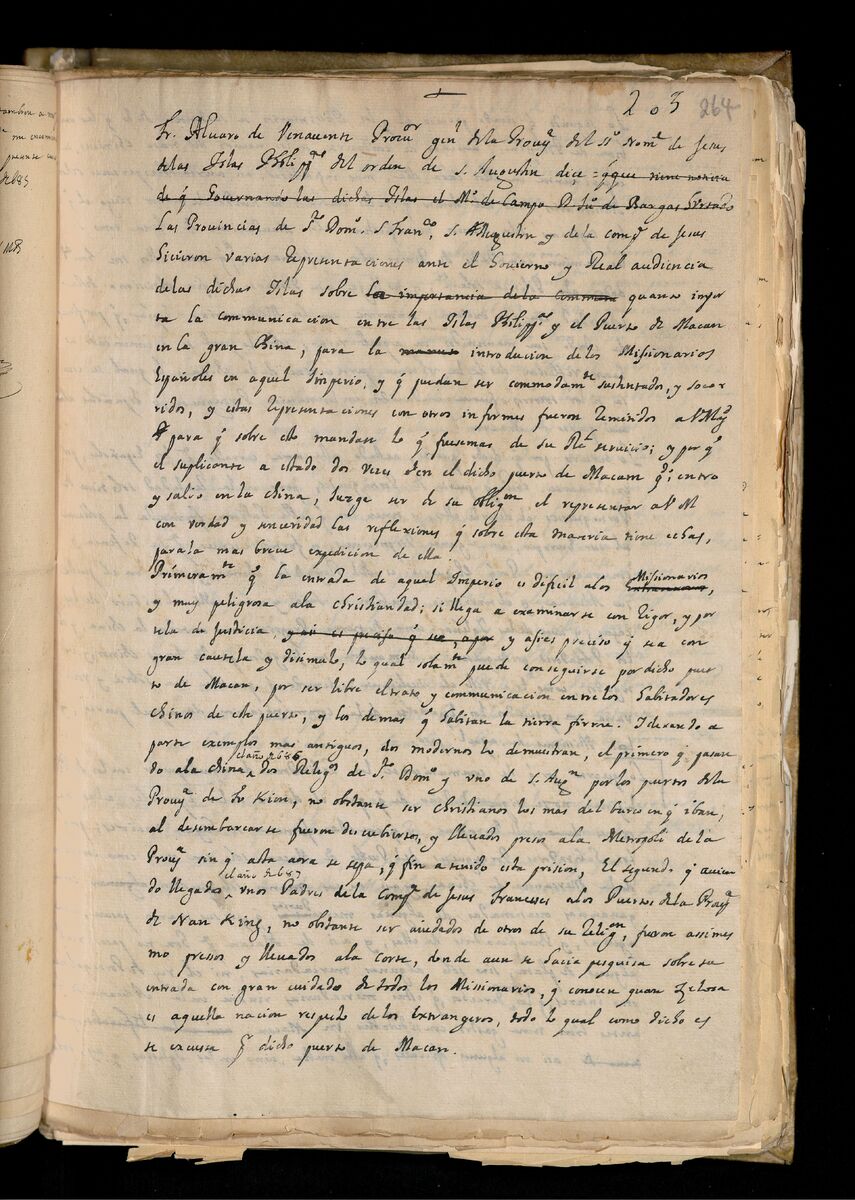 203 264
Fr. Alvaro de Venavente Procu.or gen.l dela Prou.a del S.o Nom.e de Jesus
delas Islas Philipp.as del orden de S. Augustin dice = q̃ que tiene noticia
de q̃ Governando las dichas Islas el M.o de Campo D. Ju.o de Bargas Vrtado
Las Provincias de S.to Dom.o S Fran.co, S. Augustin y dela comp.a de Jesus
hicieron varias representaciones ante el Govierno y Real audiencia
delas dichas Islas sobre la importancia dela commun quanto impor
ta la communicacion entre las Islas Philipp.as y el Puerto de Macan
en la gran China, para la introducion de los Missionarios
Españoles en aquel Imperio, y q̃ puedan ser commodam.te sustentados, y socor
ridos, y estas representaciones con otros informes fueron remitidos a V Mag.
para q̃ sobre ello mandase lo q̃ fuesemas de su R.l servicio; y por q.e
el suplicante a estado dos veces en el dicho puerto de Macam q.do entro
y salio en la china, Juzga ser de su oblig.on el representar a V M
con verdad y sinceridad las reflexiones q̃ sobre esta materia tiene echas,
parala mas breve expedicion de ella.
Primeram.te q.e la entrada de aquel Imperio es dificil alos Missionarios,
y muy peligrosa ala christiandad; si llega a examinarse con rigor, y por
tela de Justicia, y asi es preciso q̃ sea, a por y asies preciso q̃ sea con
gran cautela y disimulo, lo qual solam.te puede conseguirse por dicho puer
to de Macan, por ser libre eltrato y communicacion entre los habitadores
chinos de este puerto, y los demas q̃ habitan la tierra firme. I dexando a
parte exemplos mas antiguos, dos modernos lo demuestran, el primero q̃ pasan
el año de 686
do ala china dos Relig.os de S.to Dom.o y uno de S. Aug.n por los puertos dela
Prou.a de Fo Kien, no obstante ser christianos los mas del barco en q̃ iban,
al desembarcarse fueron descubiertos, y llevados presos ala Metropoli de la
Prou.a sin q̃ asta aora se sepa, q̃ fin a tenido esta prision, El segundo q̃ avien
el año de 687
do llegado unos Padres dela Comp.a de Jesus Franceses alos Puertos dela Prou.a
de Nan King, no obstante ser aiudados de otros de su relig.on, fueron assimes
mo presos y llevados ala Corte, donde aun se hacia pesquisa sobre su
entrada con gran cuidado de todos los Missionarios, q̃ conocen quan zelosa
es aquella nacion respecto de los extrangeros, todo lo qual como dicho es
se excussa p.r dicho puerto de Macan.